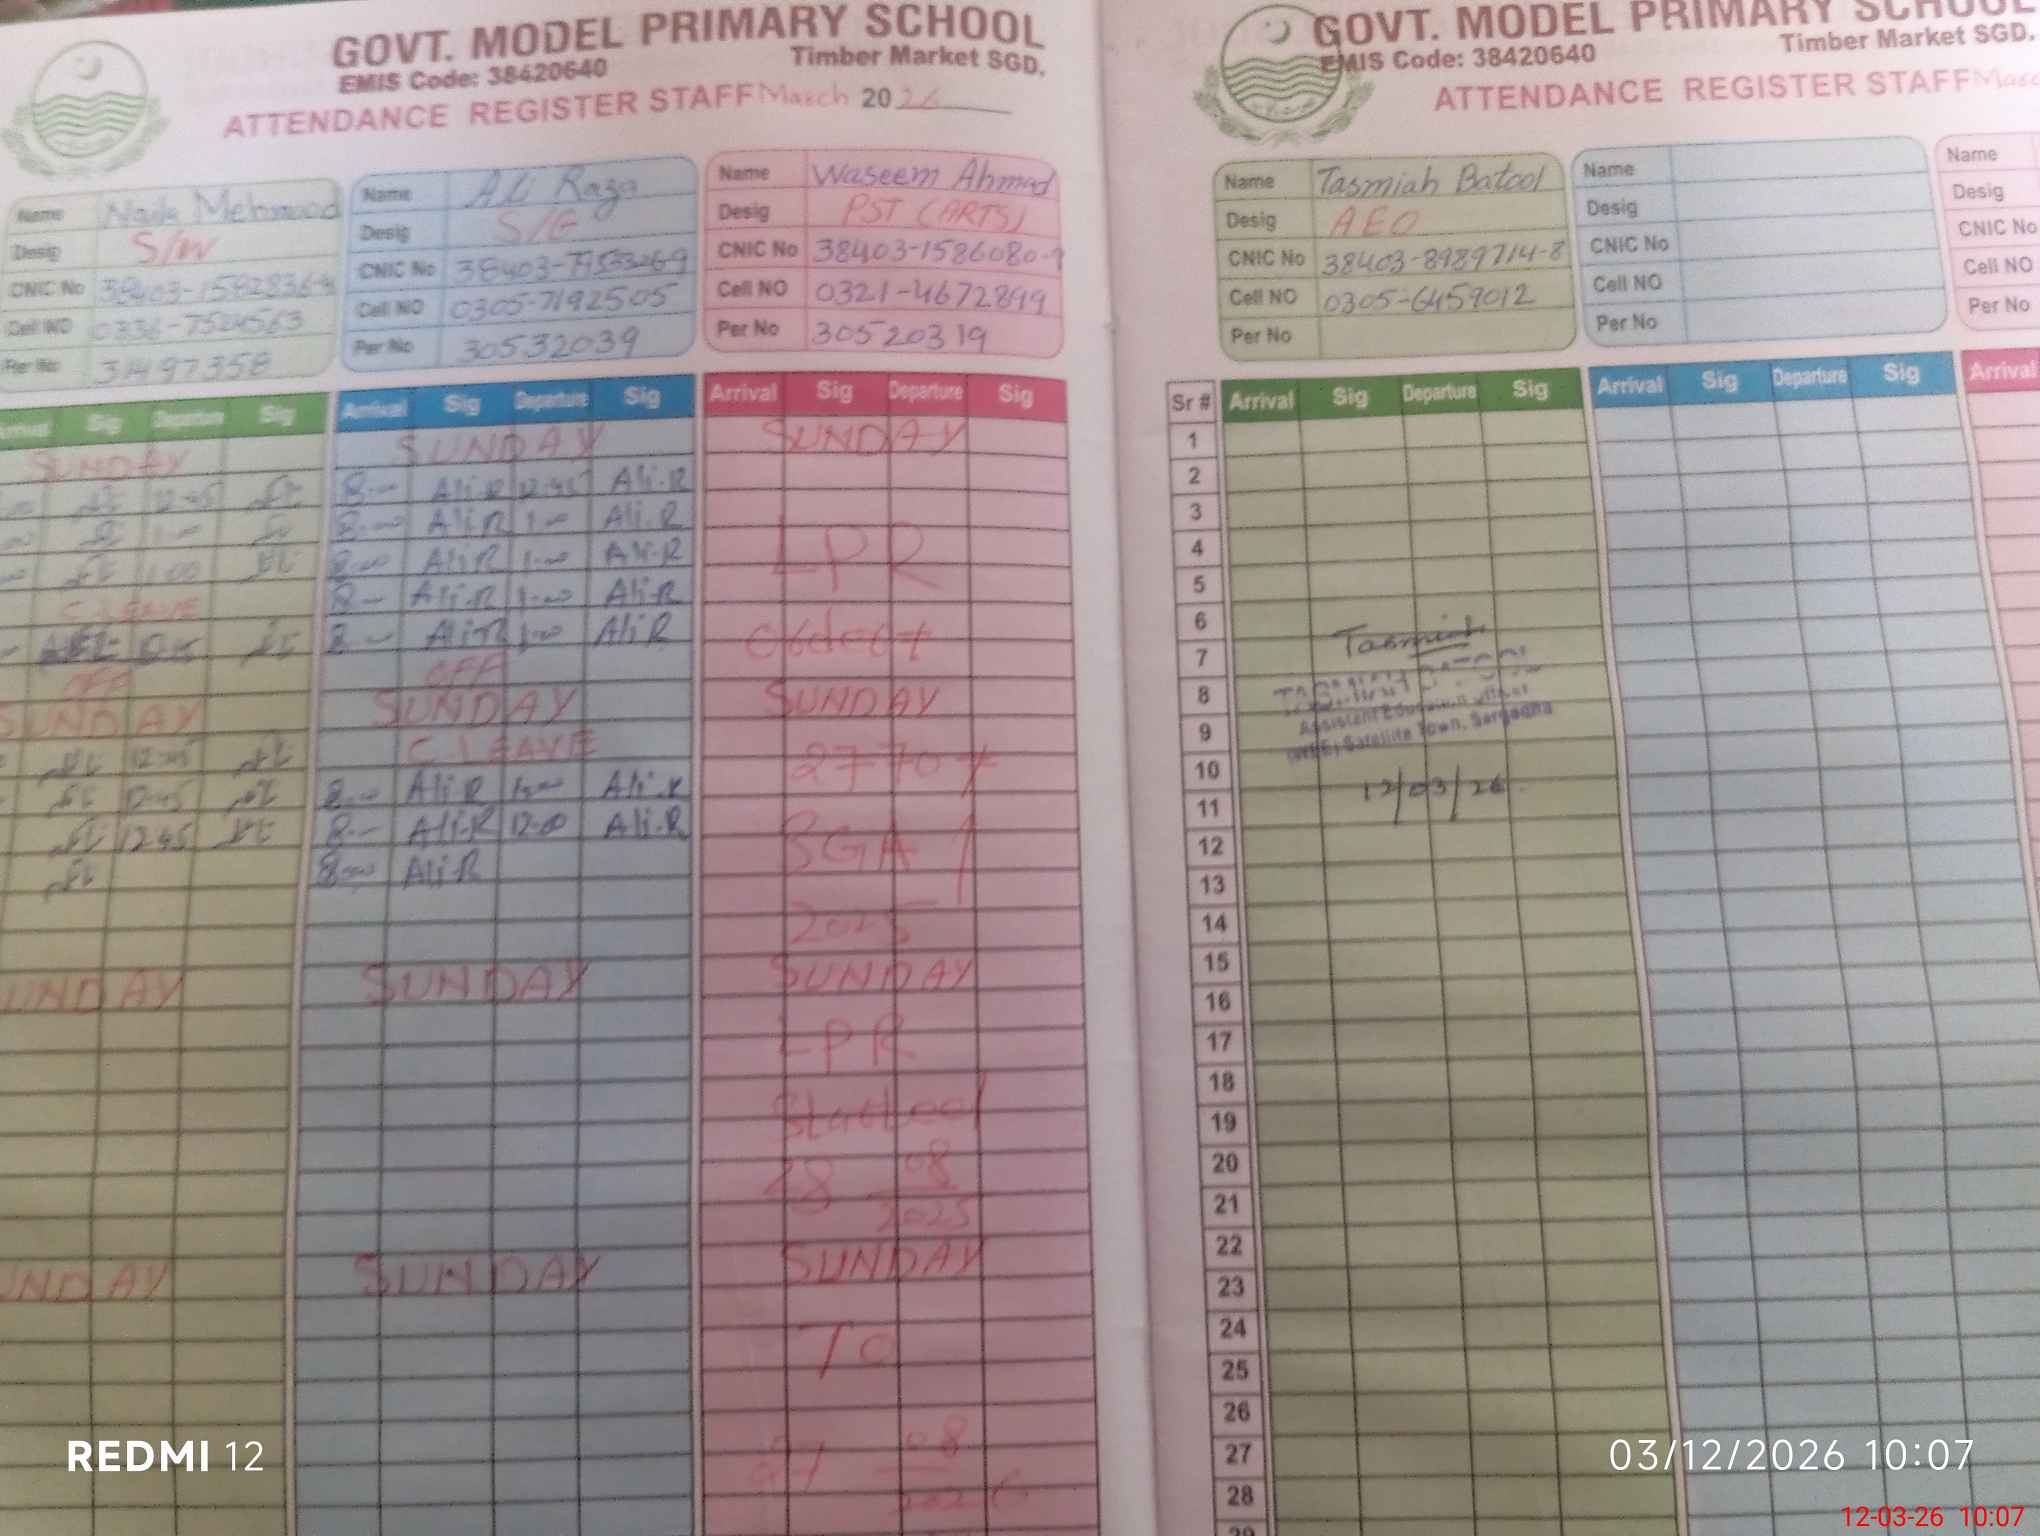 GOVT. MODEL PRIMARY SCHOOL
EMIS Code: 38420640
Timber Market SGD.
ATTENDANCE REGISTER STAFF March 2026
Name Naila Mehmood
Desig S/W
CNIC No
Cell NO 0336-7524563
Per No 31497358
Name Ali Raza
Desig S/G
CNIC No
Cell NO 0305-7192505
Per No 30532039
Name Waseem Ahmad
Desig PST (ARTS)
CNIC No 38403-1586080-9
Cell NO 0321-4672899
Per No 30520319
Arrival Sig Departure Sig
SUNDAY
12:45
1-00
1-00
C.LEAVE
OFF
SUNDAY
12:45
12:45
12:45
SUNDAY
SUNDAY
Arrival Sig Departure Sig
SUNDAY
8-- Ali.R 12:45 Ali.R
8-00 Ali.R 1-00 Ali.R
8-00 Ali.R 1-00 Ali.R
8-- Ali.R 1-00 Ali.R
8-- Ali.R 1-00 Ali.R
OFF
SUNDAY
C.LEAVE
8-00 Ali.R 1-00 Ali.R
8-- Ali.R 12-00 Ali.R
8-00 Ali.R
SUNDAY
SUNDAY
Arrival Sig Departure Sig
SUNDAY
LPR
SUNDAY
SGA
2025
SUNDAY
LPR
28 08
2025
SUNDAY
TO
08
GOVT. MODEL PRIMARY SCHOOL
EMIS Code: 38420640
Timber Market SGD.
ATTENDANCE REGISTER STAFF
Name Tasmiah Batool
Desig AEO
CNIC No 38403-8989714-8
Cell NO 0305-6459012
Per No
Name
Desig
CNIC No
Cell NO
Per No
Name
Desig
CNIC No
Cell NO
Per No
Sr # Arrival Sig Departure Sig Arrival Sig Departure Sig Arrival
1
2
3
4
5
6
7
8
9
10
11
12
13
14
15
16
17
18
19
20
21
22
23
24
25
26
27
28
29
Tasmiah
TASMIAH BATOOL
Assistant Education Officer
Satellite Town, Sargodha
12/03/26
REDMI 12
03/12/2026 10:07
12-03-26 10:07